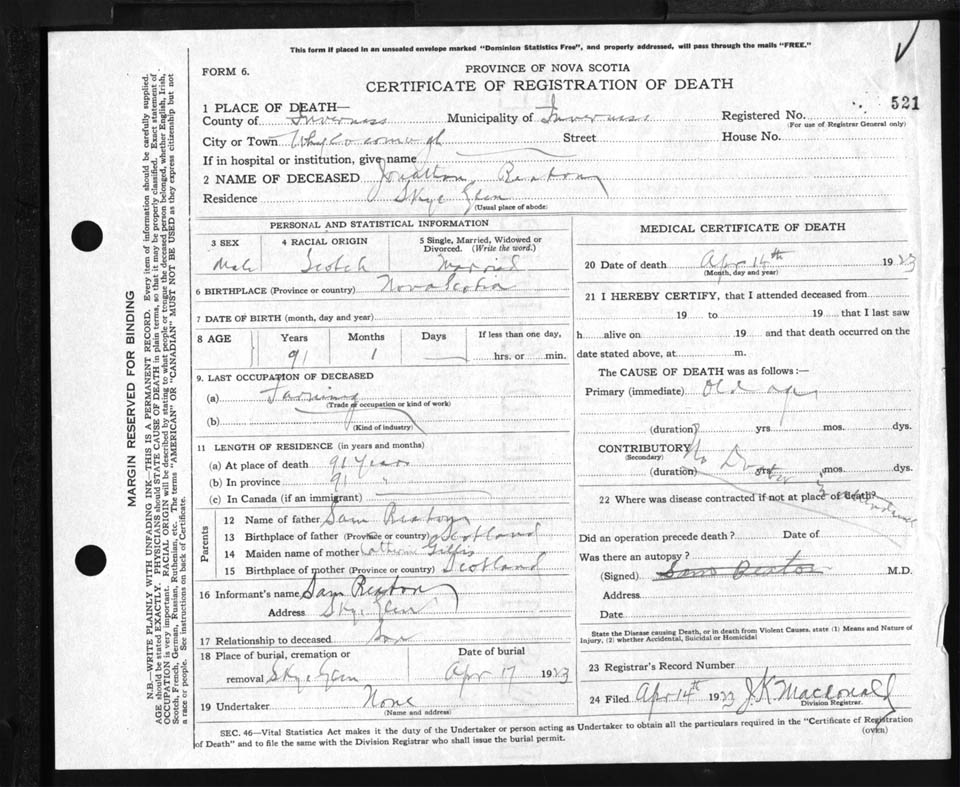 This form if placed in an unsealed envelope marked "Dominion Statistics Free", and properly addressed, will pass through the mails "FREE."
FORM 6.
PROVINCE OF NOVA SCOTIA
CERTIFICATE OF REGISTRATION OF DEATH
521
1 PLACE OF DEATH—
County of Inverness Municipality of Inverness Registered No.
(For use of Registrar General only)
City or Town Whycocomagh Street House No.
If in hospital or institution, give name
2 NAME OF DECEASED Beaton
Residence Skye Glen
(Usual place of abode)
PERSONAL AND STATISTICAL INFORMATION
3 SEX 4 RACIAL ORIGIN 5 Single, Married, Widowed or Divorced. (Write the word.)
Male Scotch Married
6 BIRTHPLACE (Province or country) Nova Scotia
7 DATE OF BIRTH (month, day and year)
8 AGE Years Months Days If less than one day,
91 1 hrs. or min.
9. LAST OCCUPATION OF DECEASED
(a) Farming
(Trade or occupation or kind of work)
(b)
(Kind of industry)
11 LENGTH OF RESIDENCE (in years and months)
(a) At place of death 91 Years
(b) In province 91 "
(c) In Canada (if an immigrant)
Parents
12 Name of father Sam Beaton
13 Birthplace of father (Province or country) Scotland
14 Maiden name of mother Catherine Gillis
15 Birthplace of mother (Province or country) Scotland
16 Informant's name Sam Beaton
Address Skye Glen
17 Relationship to deceased Son
18 Place of burial, cremation or Date of burial
removal Skye Glen Apr 17 1923
19 Undertaker None
(Name and address)
MEDICAL CERTIFICATE OF DEATH
20 Date of death Apr 14th 1923
(Month, day and year)
21 I HEREBY CERTIFY, that I attended deceased from
19 to 19 that I last saw
h alive on 19 and that death occurred on the
date stated above, at m.
The CAUSE OF DEATH was as follows:—
Primary (immediate) Old age
(duration) yrs mos. dys.
CONTRIBUTORY
(Secondary)
No Dr in attendence
(duration) yrs mos. dys.
22 Where was disease contracted if not at place of death?
Did an operation precede death? Date of
Was there an autopsy?
(Signed) Sam Beaton M.D.
Address
Date
State the Disease causing Death, or in death from Violent Causes, state (1) Means and Nature of
Injury, (2) whether Accidental, Suicidal or Homicidal
23 Registrar's Record Number
24 Filed Apr 14th 1923 J.K. Macdonald
Division Registrar.
SEC. 46—Vital Statistics Act makes it the duty of the Undertaker or person acting as Undertaker to obtain all the particulars required in the "Certificate of Registration
of Death" and to file the same with the Division Registrar who shall issue the burial permit.
(OVER)
MARGIN RESERVED FOR BINDING
N.B.—WRITE PLAINLY WITH UNFADING INK—THIS IS A PERMANENT RECORD. Every item of information should be carefully supplied.
AGE should be stated EXACTLY. PHYSICIANS should STATE CAUSE OF DEATH in plain terms, so that it may be properly classified. Exact statement of
OCCUPATION is very important. RACIAL ORIGIN will be described by stating to what people or tongue the deceased person belonged, whether English, Irish,
Scotch, French, German, Russian, Ruthenian, etc. The terms "AMERICAN" OR "CANADIAN" MUST NOT BE USED as they express citizenship but not
a race or people. See instructions on back of Certificate.